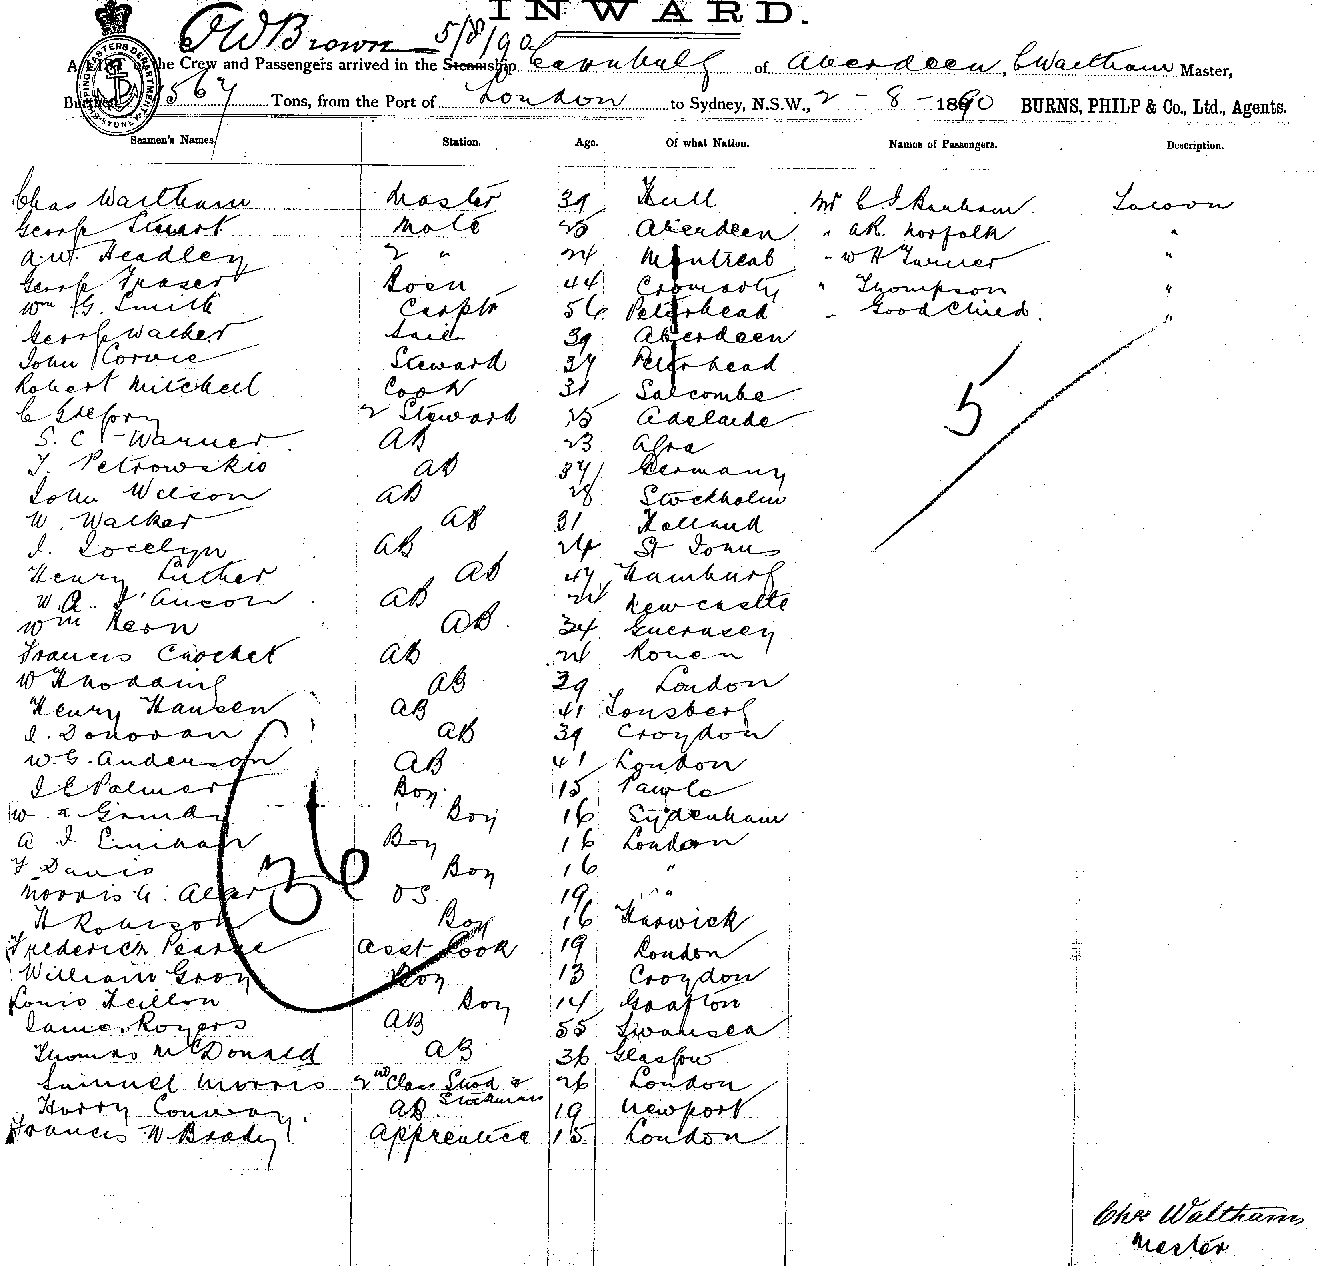 INWARD.
F W Brown 5/8/90
A List of the Crew and Passengers arrived in the Steamship Cairnbulg of Aberdeen, C Waltham Master,
Burthen 1567 Tons, from the Port of London to Sydney, N.S.W., 2 - 8 - 1890 BURNS, PHILP & Co., Ltd., Agents.
Seamen's Names. Station. Age. Of what Nation. Names of Passengers. Description.
Chas Waltham Master 39 Hull Mr C J Banham Saloon
George Stuart Mate 25 Aberdeen " A R Norfolk "
A. W. Headley 2 " 24 Montreal " W H Turner "
George Fraser Bosn 44 Cromarty " Thompson "
Wm G. Smith Carptr 56 Peterhead " Goodchild. "
George Walker Sail 39 Aberdeen
John Corvie Steward 37 Peterhead
Robert Mitchell Cook 31 Salcombe
C Gregory 2 Steward 25 Adelaide
S. C. Warner AB 23
T. Petrowskio AB 37 Germany
John Wilson AB 28 Stockholm
W. Walker AB 31 Holland
J. Jocelyn AB 24 St Johns
Henry Luther AB 47 Hamburg
W. A. AB 24 Newcastle
Wm Kern AB. 34 Guernsey
Francis Crochet AB 24 Rouen
W AB 39 London
Henry Hansen AB 41 Tonsberg
J. Donovan AB 39 Croydon
W. G. Anderson AB 41 London
J E Palmer Boy 15
W Grundy Boy 16 Sydenham
A J Boy 16 London
F Davis Boy 16 "
Morris A. Alger OS. 19 "
H Robinson Boy 16 Harwick
Frederick Pearse Asst Cook 19 London
William Gray Boy 13 Croydon
Louis Heillon Boy 14 Grafton
James Rogers AB 55 Swansea
Thomas McDonald AB 36 Glasgow
Samuel Morris 2nd Class Stwd & Storeman 26 London
Harry Conway. AB 19 Newport
Francis W Brady Apprentice 15 London
5
36
Chas Waltham
Master